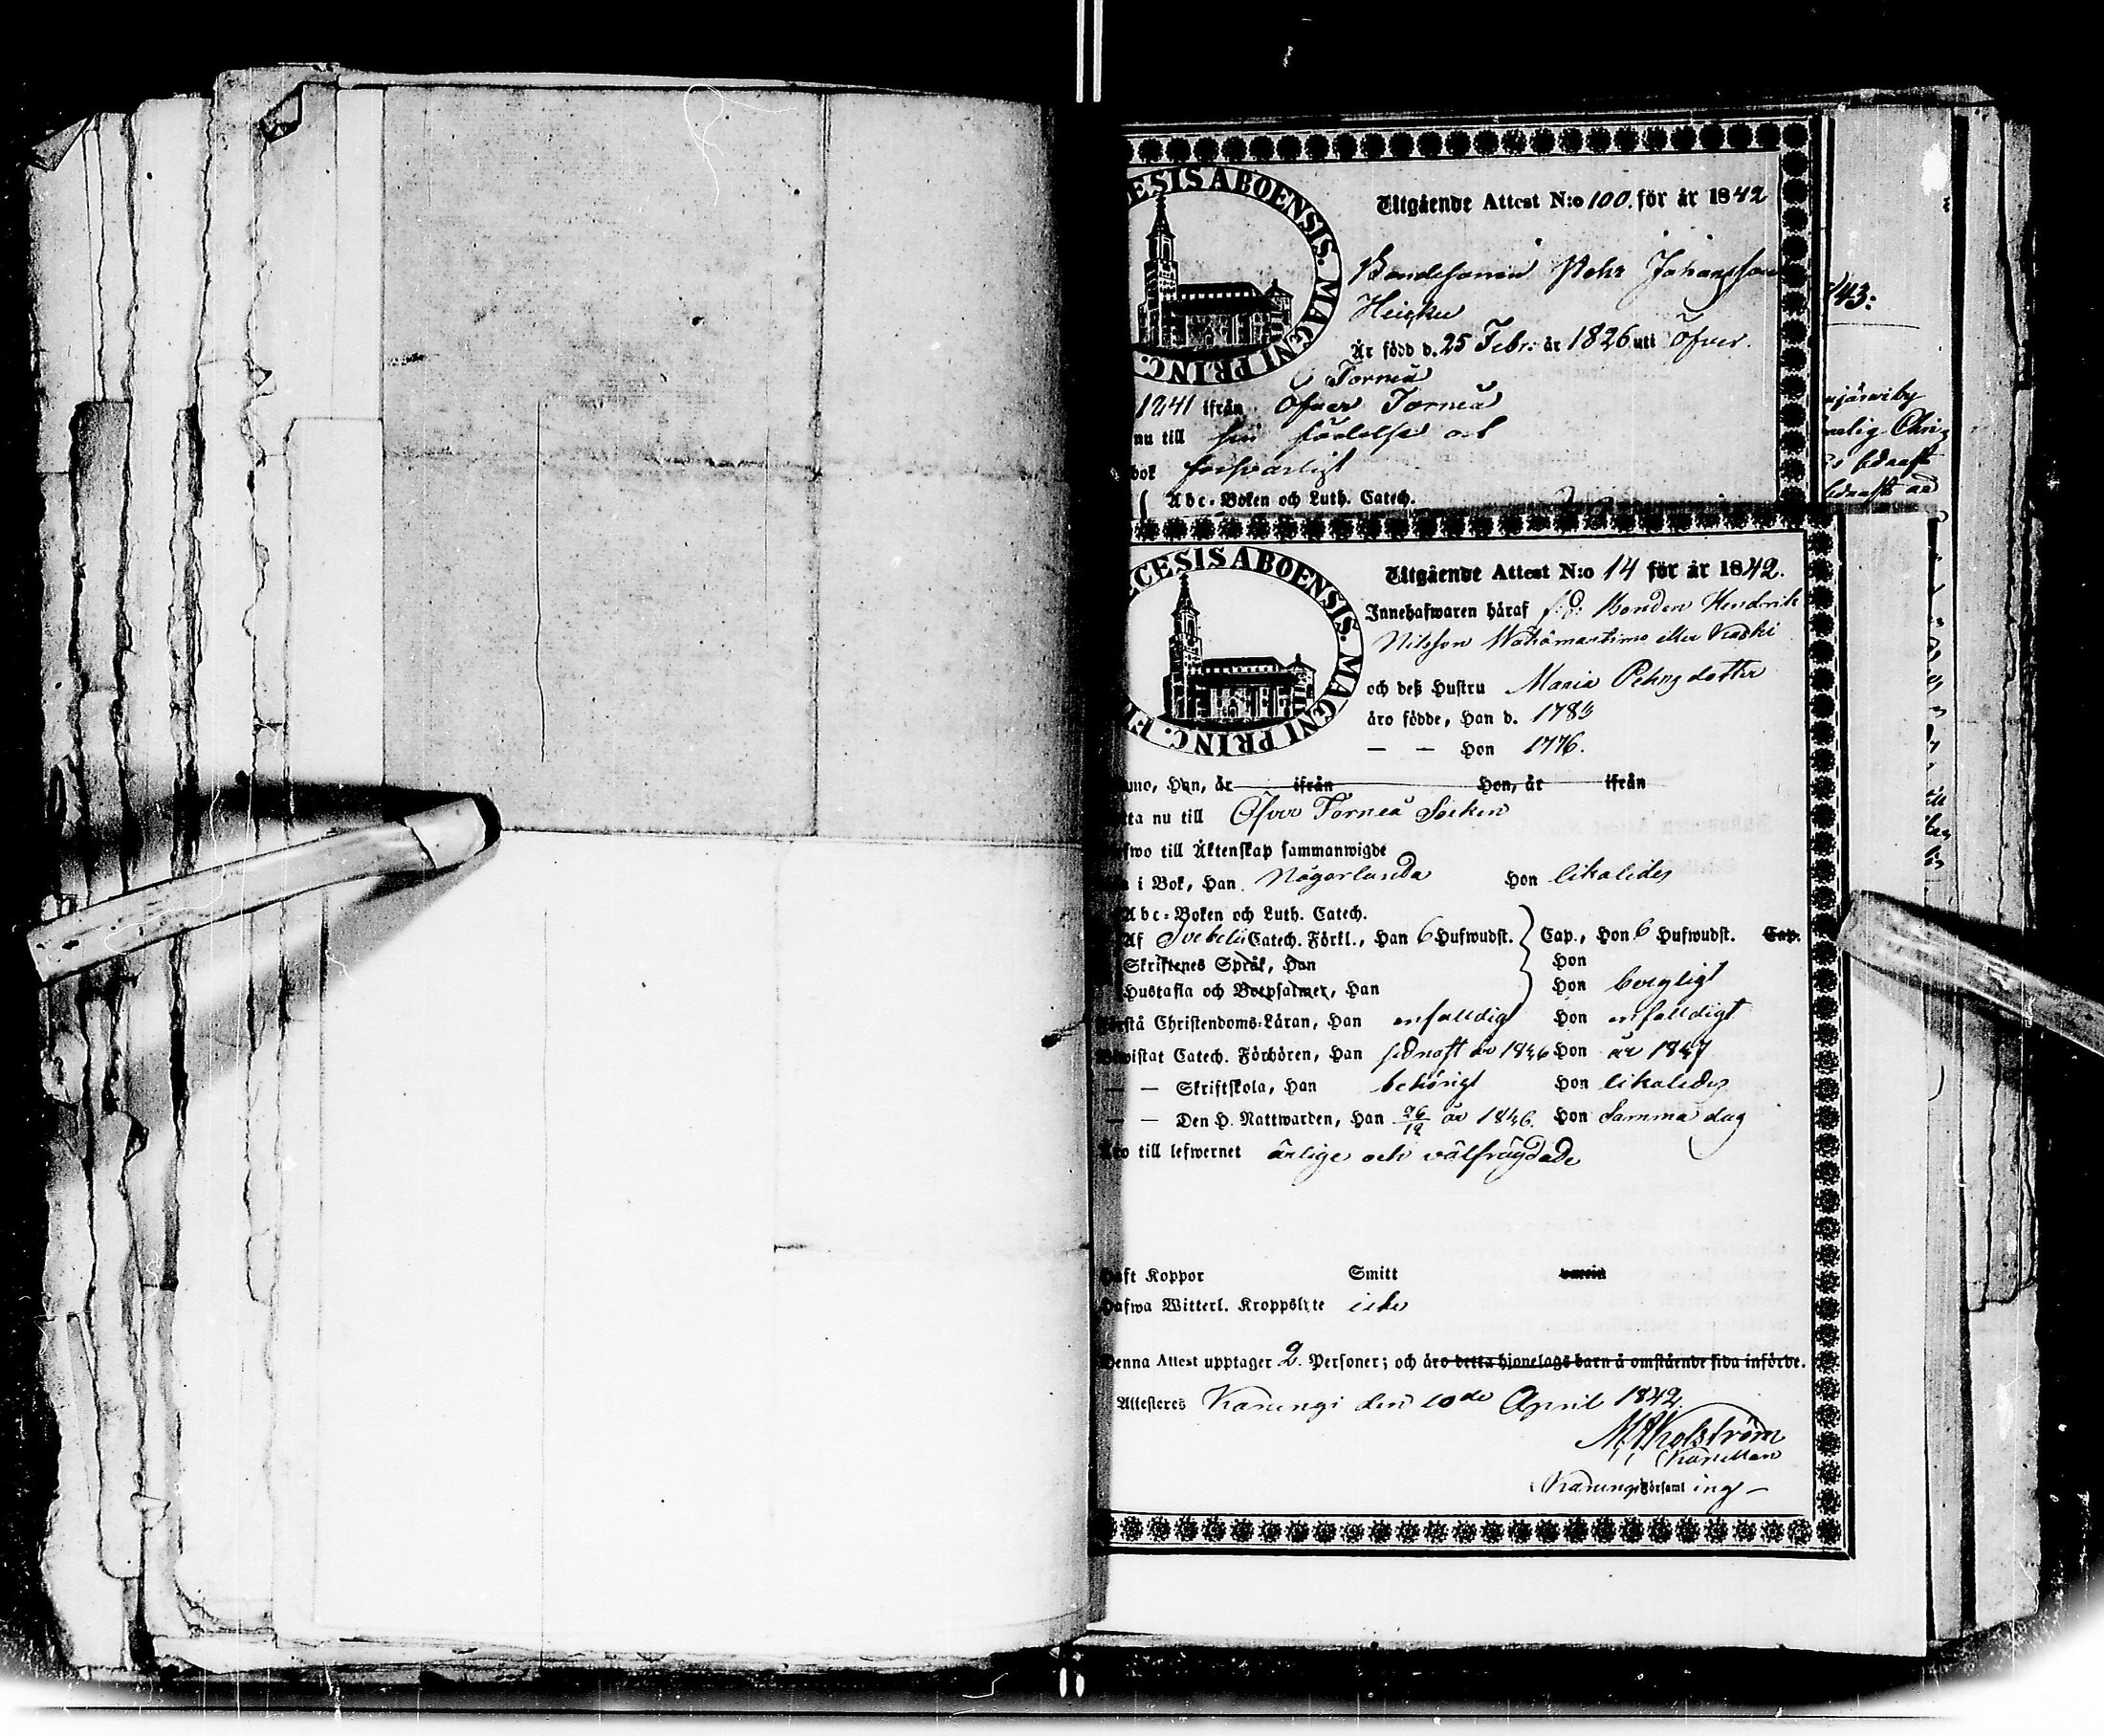 ESIS ABOENSIS. MAGNI PRINC.
Utgående Attest N:o 100. för år 1842
Bondesonen Pehr Johansson
Heicku
Är född d. 25 Febr: år 1826 uti Öfver
Torneå
1841 ifrån Öfver Torneå
nu till sin födelse ort
bok försvarligt
Abc-Boken och Luth. Catech.
43:
järwiby
CESIS ABOENSIS. MAGNI PRINC. F
Utgående Attest N:o 14 för år 1842.
Innehafwaren häraf f.d. Bonden Hendrik
Nilsson eller Kaski
och deß Hustru Maria Pehrsdotter
äro födde, Han d. 1783
— — Hon 1776.
mo, Han, år ifrån Hon, år ifrån
tta nu till Öfver Torneå Socken
fwo till Äktenskap sammanwigde
i Bok, Han Någorlunda Hon likaledes
Abc-Boken och Luth. Catech.
Af Svebelii Catech. Förkl., Han 6 Hufwudst. Cap., Hon 6 Hufwudst. Cap.
Skriftenes Språk, Han Hon
Hustafla och Botpsalmer, Han Hon bergligt
Förstå Christendoms-Läran, Han enfaldigt Hon enfaldigt
Bewistat Catech. Förhören, Han sednast år 1836 Hon år 1837
— — Skriftskola, Han behörigt Hon likaledes
— — Den H. Nattwarden, Han 26/12 år 1836. Hon Samma dag
Äro till lefwernet ärlige och välfrägdade
Haft Koppor Smitt warit
Hafwa Witterl. Kroppslyte icke
Denna Attest upptager 2. Personer; och äro detta hjonelags barn å omstående sida införde.
Attesteres Karungi den 10de April 1842.
Karungi Församling